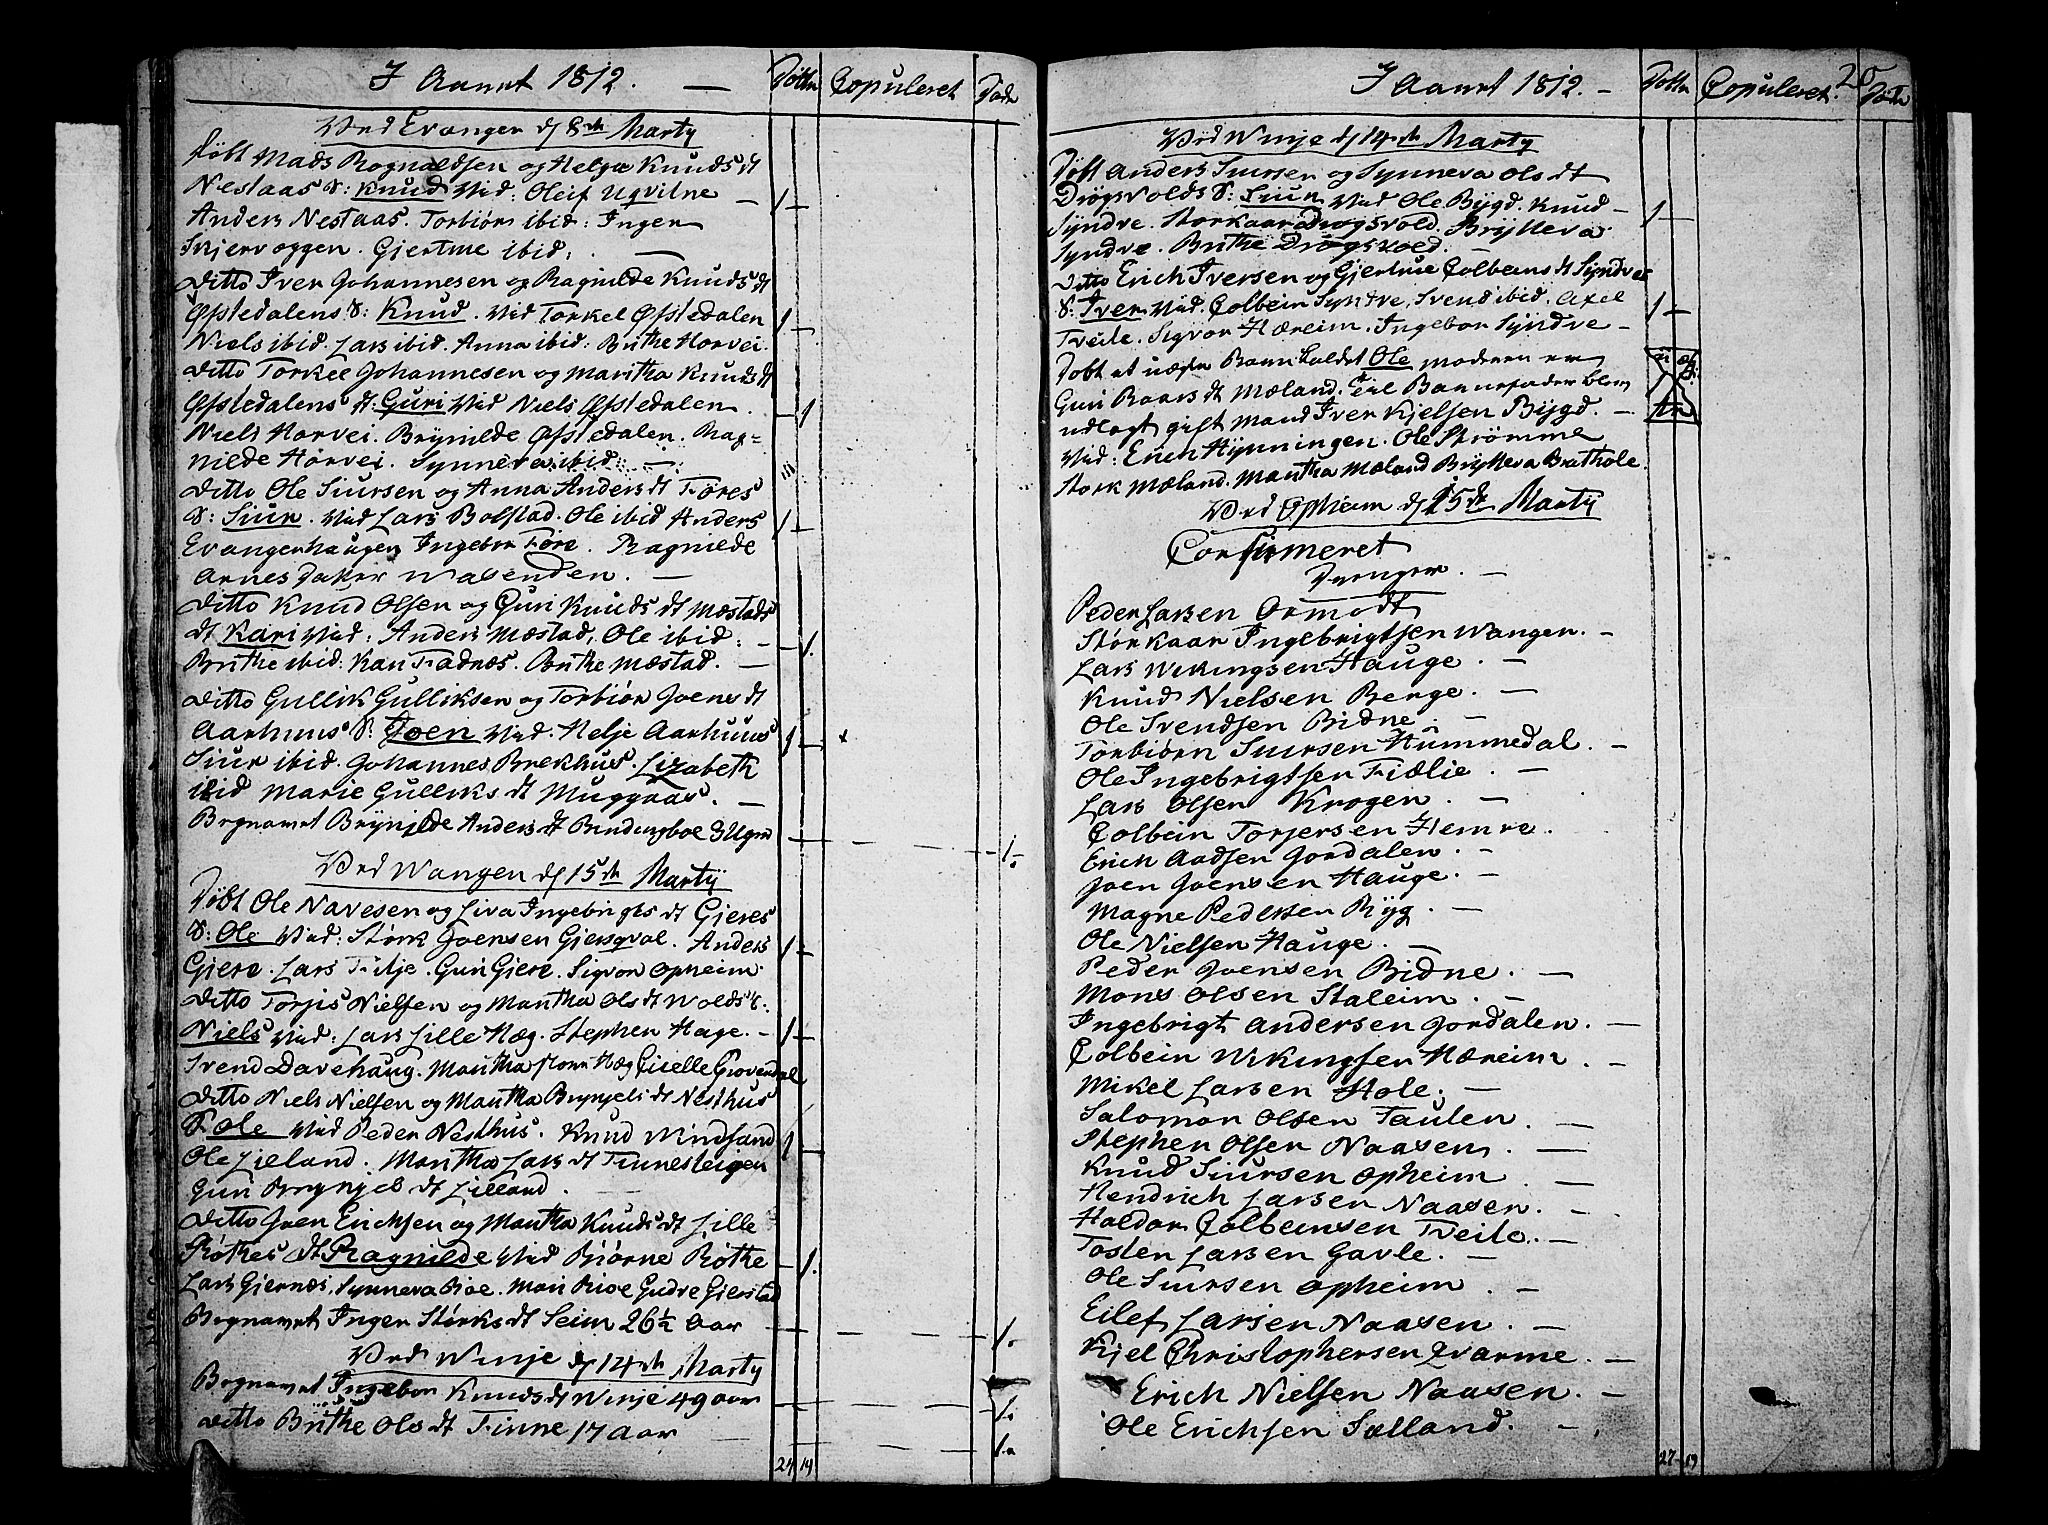 I Aaret 1812. —
Døbte
Copuleret
Døde
Ved Evanger d 8de Marty
Døbt Mads Rognaldsen og Helga Knuds dt
Nestaas S: Knud Vid: Oleif Ugvitne
Anders Nestaas. Torbiør ibid: Inger
Skiervæggen. Giertrue ibid: —
Ditto Iver Johannesen og Ragnilde Knuds dt
Øfstedalens S: Knud. Vid Torkel Øfstedalen
Niels ibid. Lars ibid. Anna ibid: Brithe Horvei.
Ditto Torkel Johannesen og Maritha Knuds dt
Øfstedalens dt: Guri Vid Niels Øfstedalen.
Niels Horvei. Brynilde Øfstedalen. Rag=
nilde Horvei. Synneva ibid: —
Ditto Ole Siursen og Anna Anders dt Føres
S: Siur. Vid Lars Bolstad. Ole ibid Anders
Evangerhaugen Ingebor Føre. Ragnilde
Arnes daker Wasenden. —
Ditto Knud Olsen og Guri Knuds dt Mæstads
dt Kari Vid: Anders Mæstad. Ole ibid: —
Brithe ibid: Kari Fadnæs. Brithe Mæstad. —
Ditto Gullik Gulliksen og Torbiør Joens dt
Aarhuus S: Joen Vid: Helje Aarhuus
Siur ibid. Johannes Brekhus. Lizabeth
ibid Marie Gulliks dt Muggaas. —
Begravet Brynilde Anders dt 3 Uger
Ved Wangen d 15de Marty
Døbt Ole Navesen og Liva Ingebrigts dt Gieres
S: Ole Vid: Størk Joensen Giersqval. Anders
Giere. Lars Tilje. Guri Giere. Sigvor Opheim
Ditto Torjis Nielsen og Maritha Ols dt Wolds S.
Niels Vid: Lars Lille Hæg. Stephen Hage. —
Svend Davehaug. Maritha Hæg Giovendal
Ditto Niels Nielsen og Maritha Brynjels dt Nesthus
S: Ole Vid Peder Nesthus. Knud Vindsand
Ole Lieland. Maritha Lars dt Finnesteigen
Guri Brynjels dt Lilland.
Ditto Joen Erichsen og Maritha Knuds dt Lille
Røthes dt Ragnilde Vid Biørne Røthe
Lars Giernæs, Synneva Roe. Mari Roe Gudve Gierstad
Begravet Inger Størks dt Seim 26½ Aar
Ved Winje d 14de Marty
Begravet Ingebor Knuds dt Winje 49 aar
Ditto Brithe Ols dt Finne 17 Aar
24 19
I Aaret 1812. —
Døbte
Copuleret
Døde
Ved Winje d 14de Marty
Døbt Anders Siursen og Synneva Ols dt
Drøgsvolds S: Siur Vid Ole Bygd. Knud —
Syndve. Storkaar Drøgsvold. Bryteva
Syndve. Brithe Drøgsvold.
Ditto Erich Iversen og Giertrue Colbeins dt Syndves
S: Iver Vid: Colbein Syndve, Svend ibid. Axel
Tveite. Sigvor Hæreim. Ingebor Syndve —
Døbt et uægte Barn kaldet Ole moderen er
Guri Roars dt Mæland. Til Barnefader blev
udlagt gift mand Iver Kjelsen Bygd. —
Vid: Erich Hynningen. Ole Strømme
Størk Mæland. Maritha Mæland Brytteva Brathole.
Ved Opheim d 15de Marty
Confirmeret
Drenger. —
Peder Larsen Ormodt
Størkaar Ingebrigtsen Wangen. —
Lars Wikingsen Hauge. —
Knud Nielsen Berge. —
Ole Svendsen Bidne. —
Torbiørn Siursen Hummedal. —
Ole Ingebrigtsen Fiælie. —
Lars Olsen Krogen. —
Colbein Torjersen Hemre.
Erich Aadsen Jordalen. —
Joen Joensen Hauge. —
Magne Pedersen Ryg. —
Ole Nielsen Hauge. —
Peder Joensen Bidne. —
Mons Olsen Staleim. —
Ingebrigt Andersen Jordalen. —
Colbein Wikingsen Hæreim. —
Mikel Larsen Hole. —
Salomon Olsen Taulen. —
Stephen Olsen Naasen. —
Knud Siursen Opheim. —
Hendrich Larsen Naasen. —
Haldor Colbeinsen Tveite. —
Tosten Larsen Gavle. —
Ole Siursen Opheim. —
Eilef Larsen Naasen. —
Kjel Christophersen Qvarme. —
Erich Nielsen Naasen. —
Ole Erichsen Sælland. —
27 19